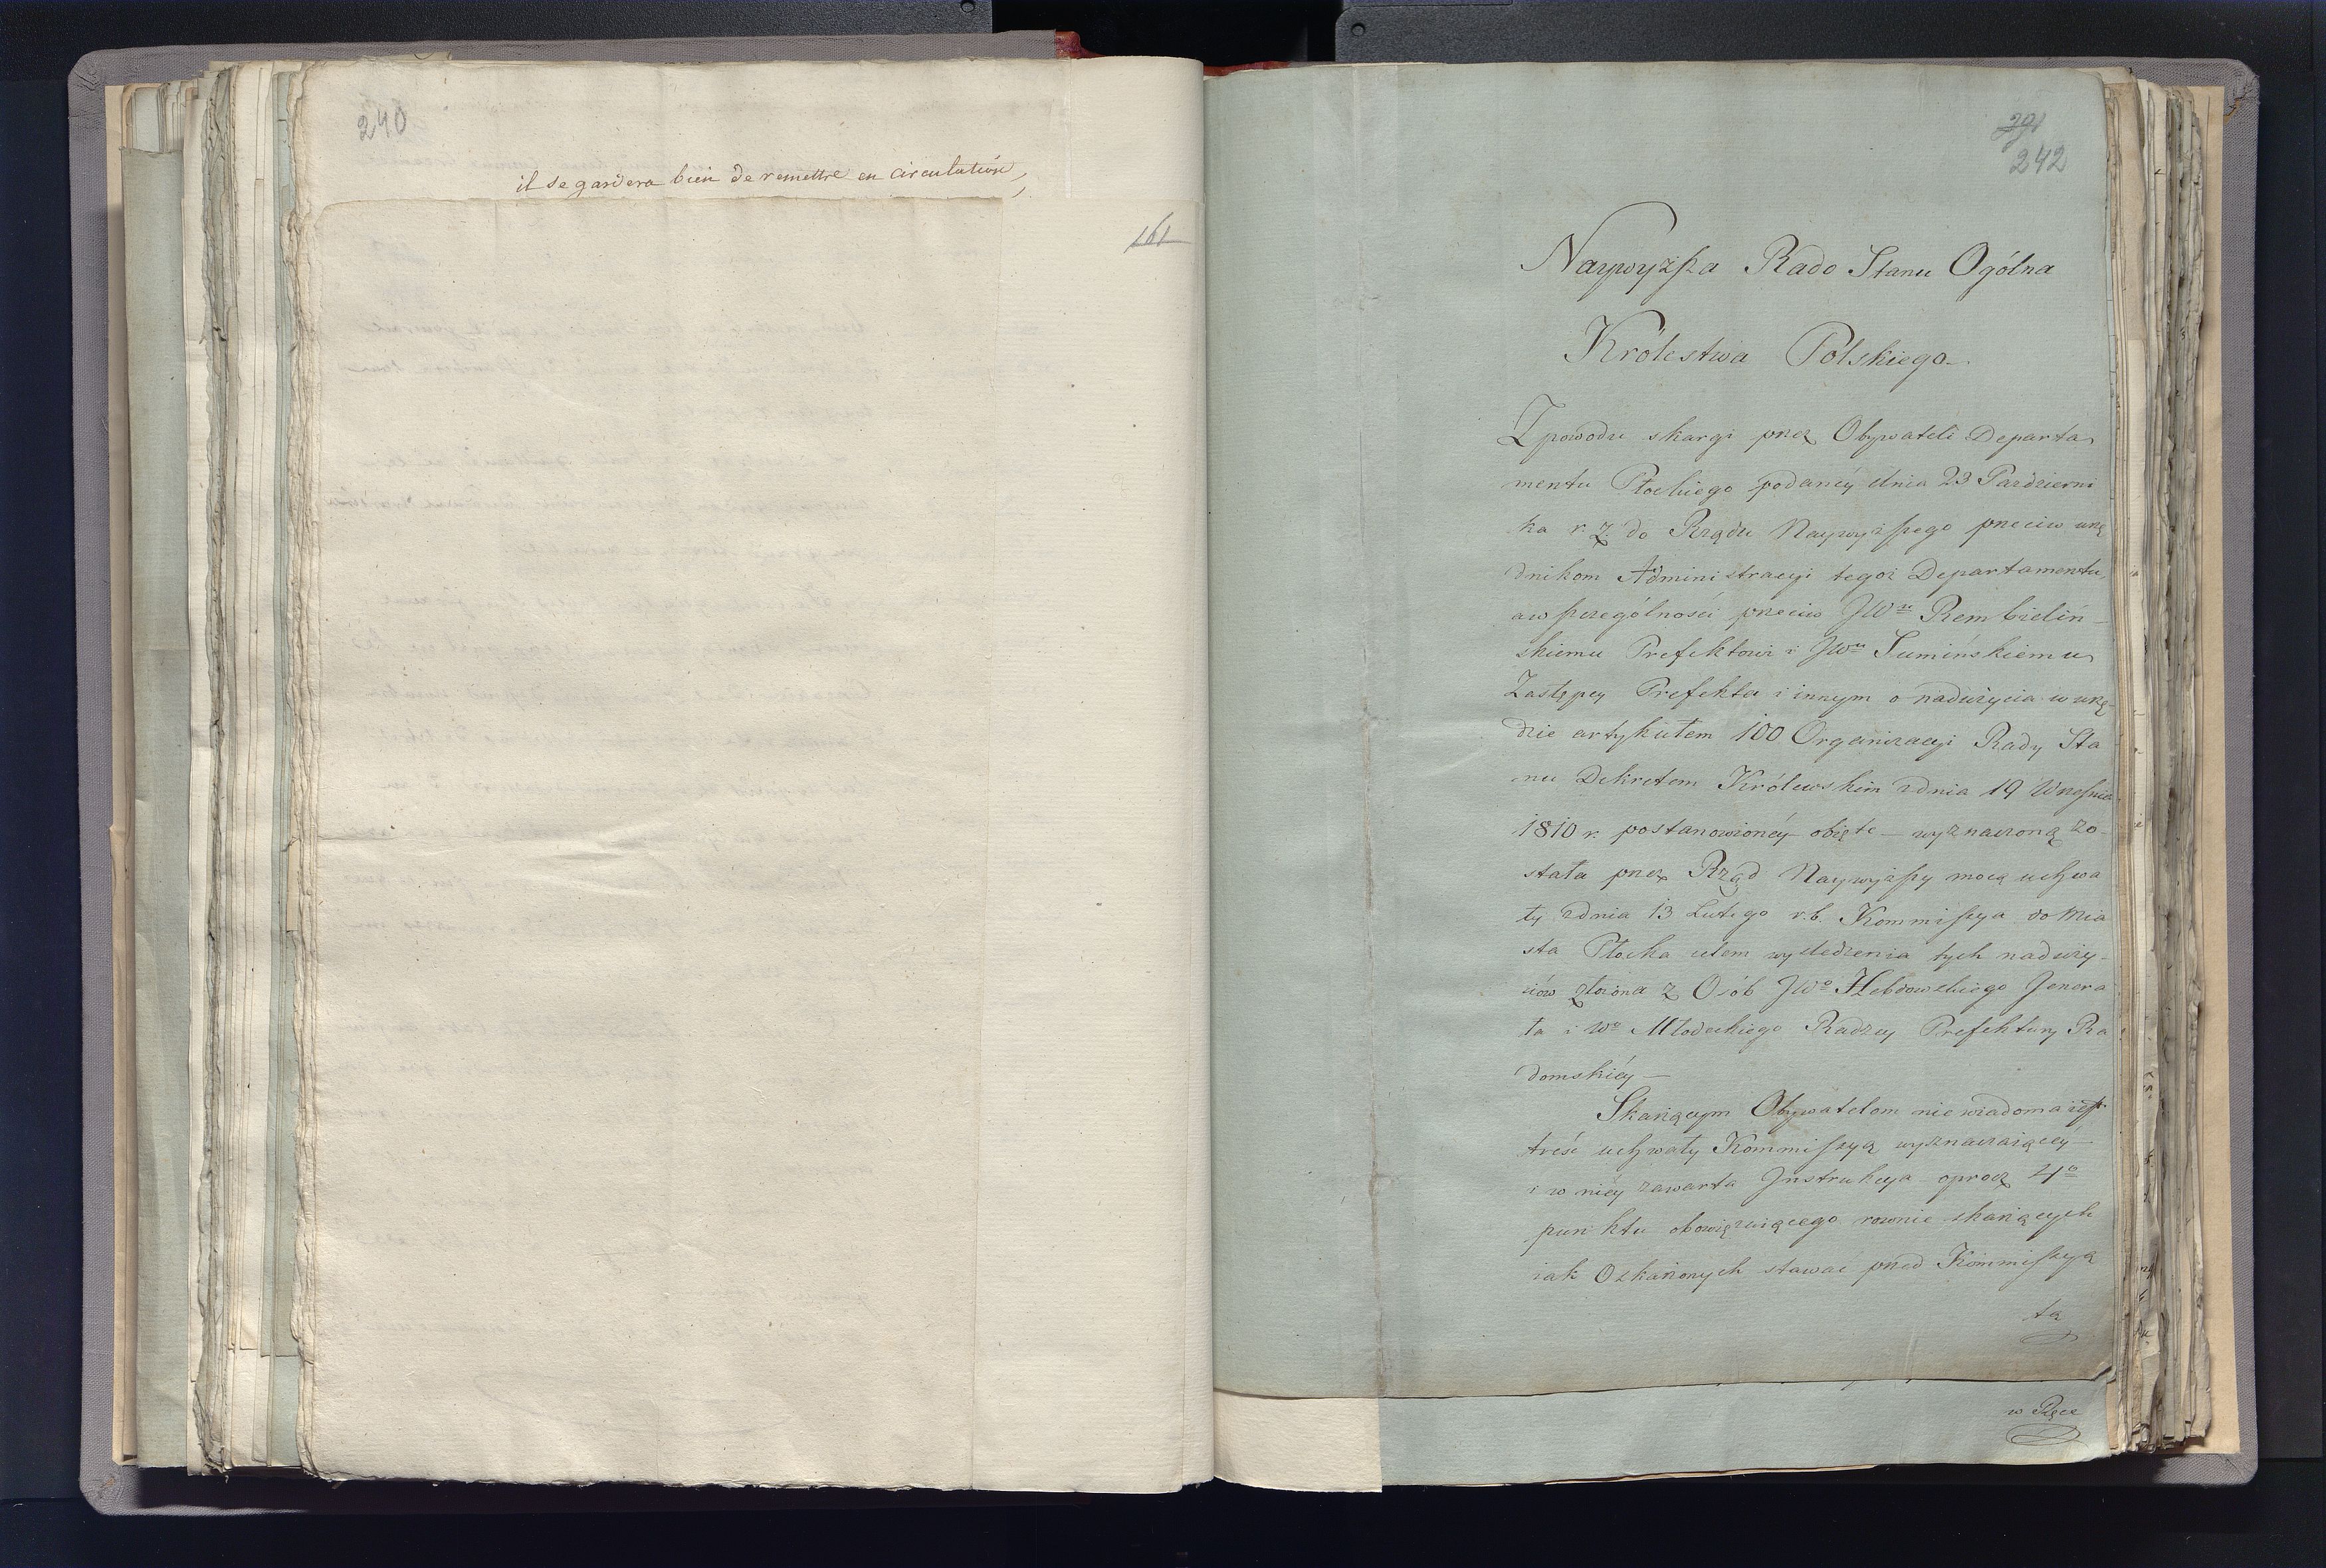 240
il se gardera bien de remettre en circulation,
161
291
242
Naywyższa Rado Stanu Ogólna
Królestwa Polskiego.
Z powodu skargi przez Obywateli Departa
mentu Płockiego podanéy dnia 23 Pazdzierni
ka r. z. do Rządu Naywyższego przeciw urzę
dnikom Administracyi tegoż Departamentu,
a w szczególności przeciw JWu Rembieliń-
skiemu Prefektowi i JWu Sumińskiemu
Zastępcy Prefekta i innym o nadużycia w urzę-
dzie artykułem 100 Organizacyi Rady Sta
nu Dekretem Królewskim zdnia 19 Wrześnie
1810 r. postanowionéy obięte — wyznaczoną zo-
stała przez Rząd Naywyższy mocą uchwa
ły zdnia 13 Lutego r. b. Kommissya do Mia
sta Płocka celem wyśledzenia tych naduży-
ciów złożona z Osób JWo Hebdowskiego Jenera
ła i Wo Młodeckiego Radzcy Prefektury Ra
domskiéy —
Skarżącym Obywatelom nie wiadoma iest
treść uchwały Kommissyą wyznaczaiącéy —
i w niéy zawarta Instrukcya oprocz 4o
punktu obowięzuiącego rownie skarżących
iak Oskarżonych stawać przed Kommissyą
tą
w Ręce